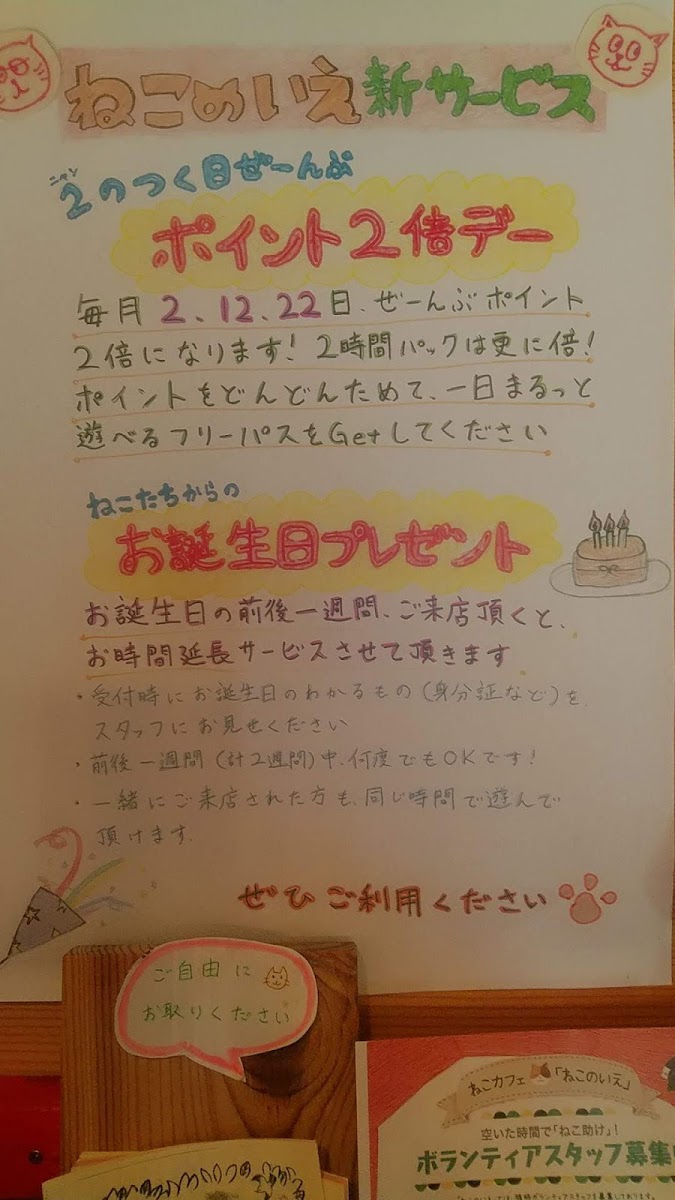 ねこのいえ新サービス
ニャン
2のつく日ぜーんぶ
ポイント2倍デー
毎月2、12、22日、ぜーんぶポイント
2倍になります！2時間パックは更に倍！
ポイントをどんどんためて、一日まるっと
遊べるフリーパスをGetしてください
ねこたちからの
お誕生日プレゼント
お誕生日の前後一週間、ご来店頂くと、
お時間延長サービスさせて頂きます
・受付時にお誕生日のわかるもの（身分証など）を、
スタッフにお見せください
・前後一週間（計2週間）中、何度でもOKです！
・一緒にご来店された方も、同じ時間で遊んで
頂けます。
ぜひご利用ください
ご自由に
お取りください
ねこカフェ「ねこのいえ」
空いた時間で「ねこ助け」！
ボランティアスタッフ募集